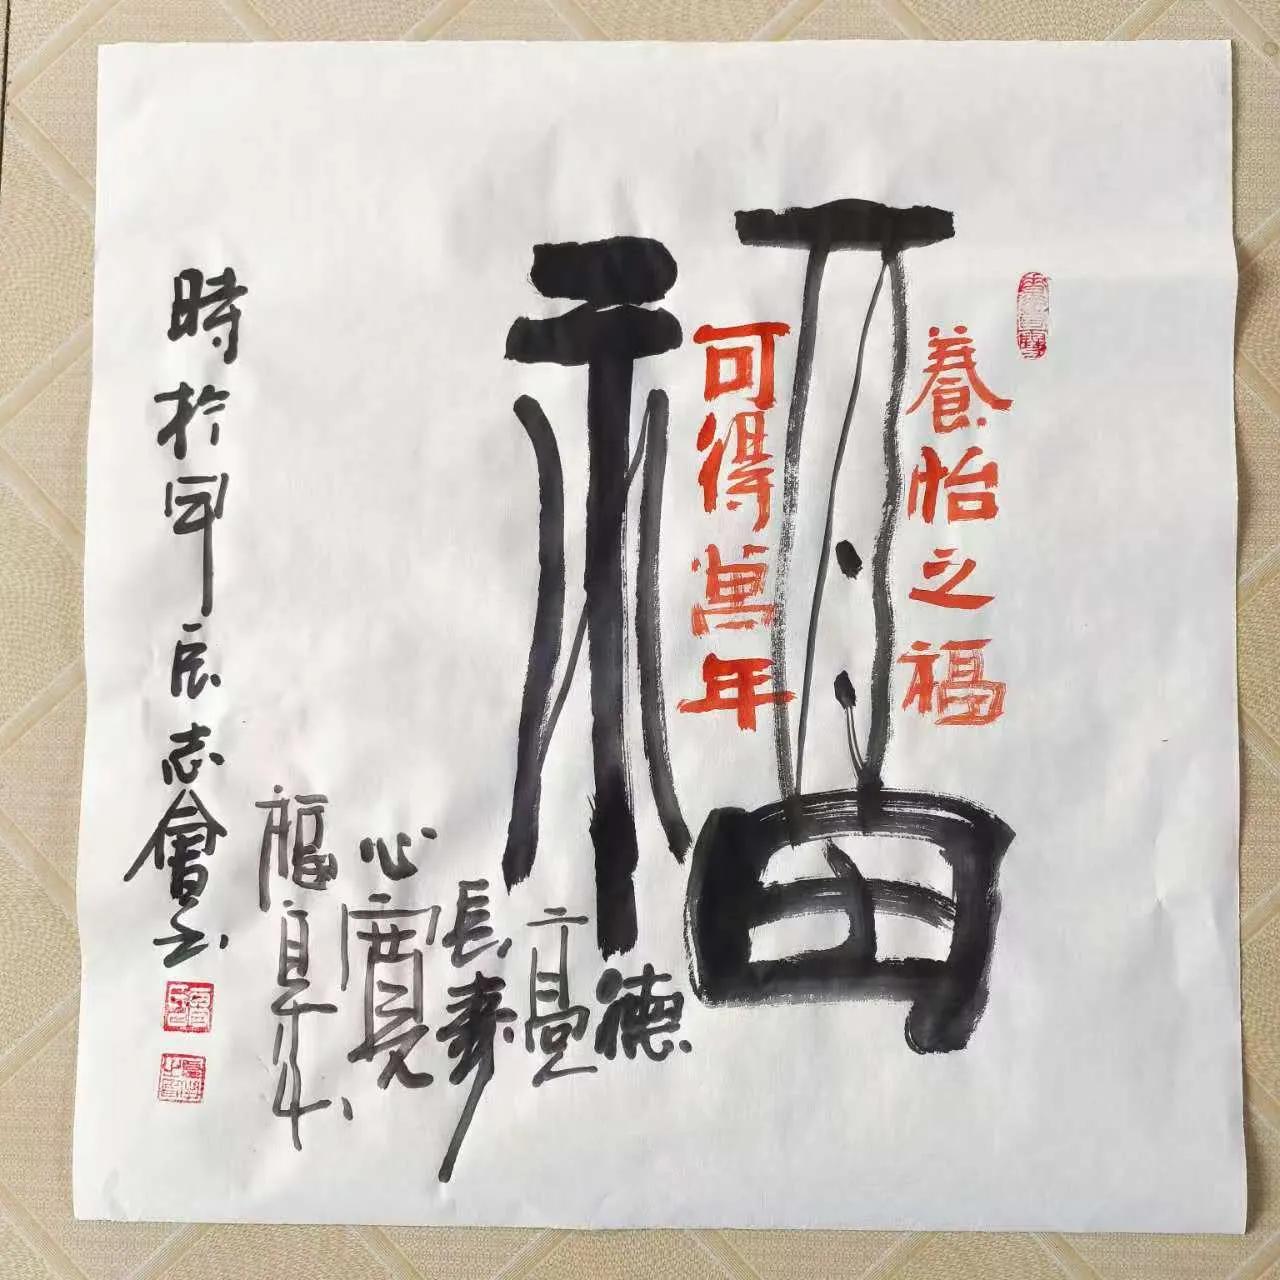 福
養怡之福
可得萬年
德高
長壽
心寬
福自
時於甲辰志會书